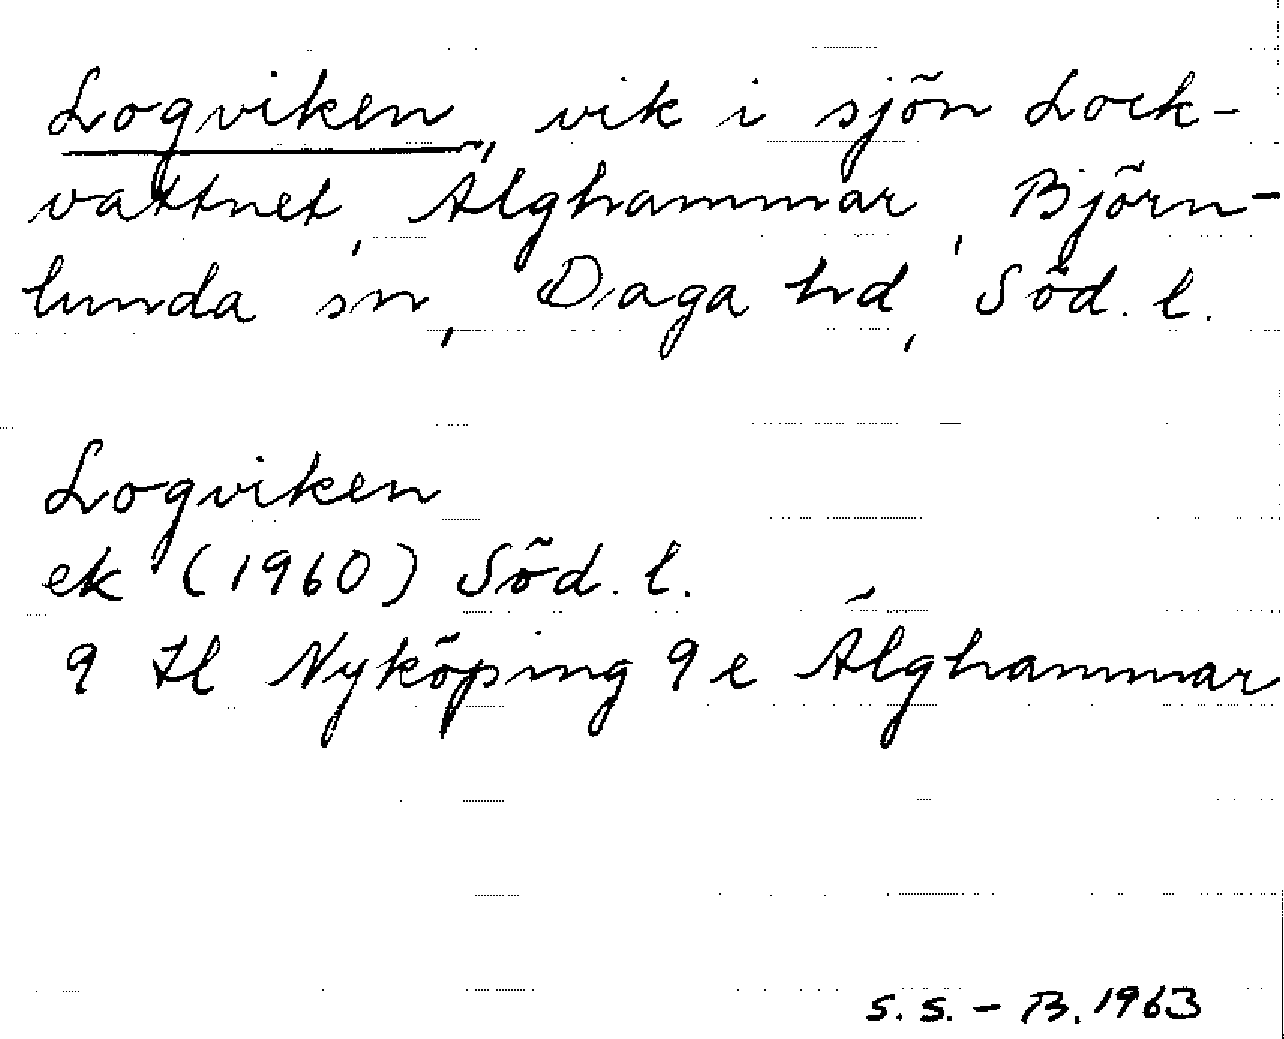 Logviken, vik i sjön Lock-
vattnet, Älghammar, Björn-
lunda sn, Daga hd, Söd. l.
Logviken
ek (1960) Söd. l.
9 H Nyköping 9 e Älghammar
S. S. - B. 1963